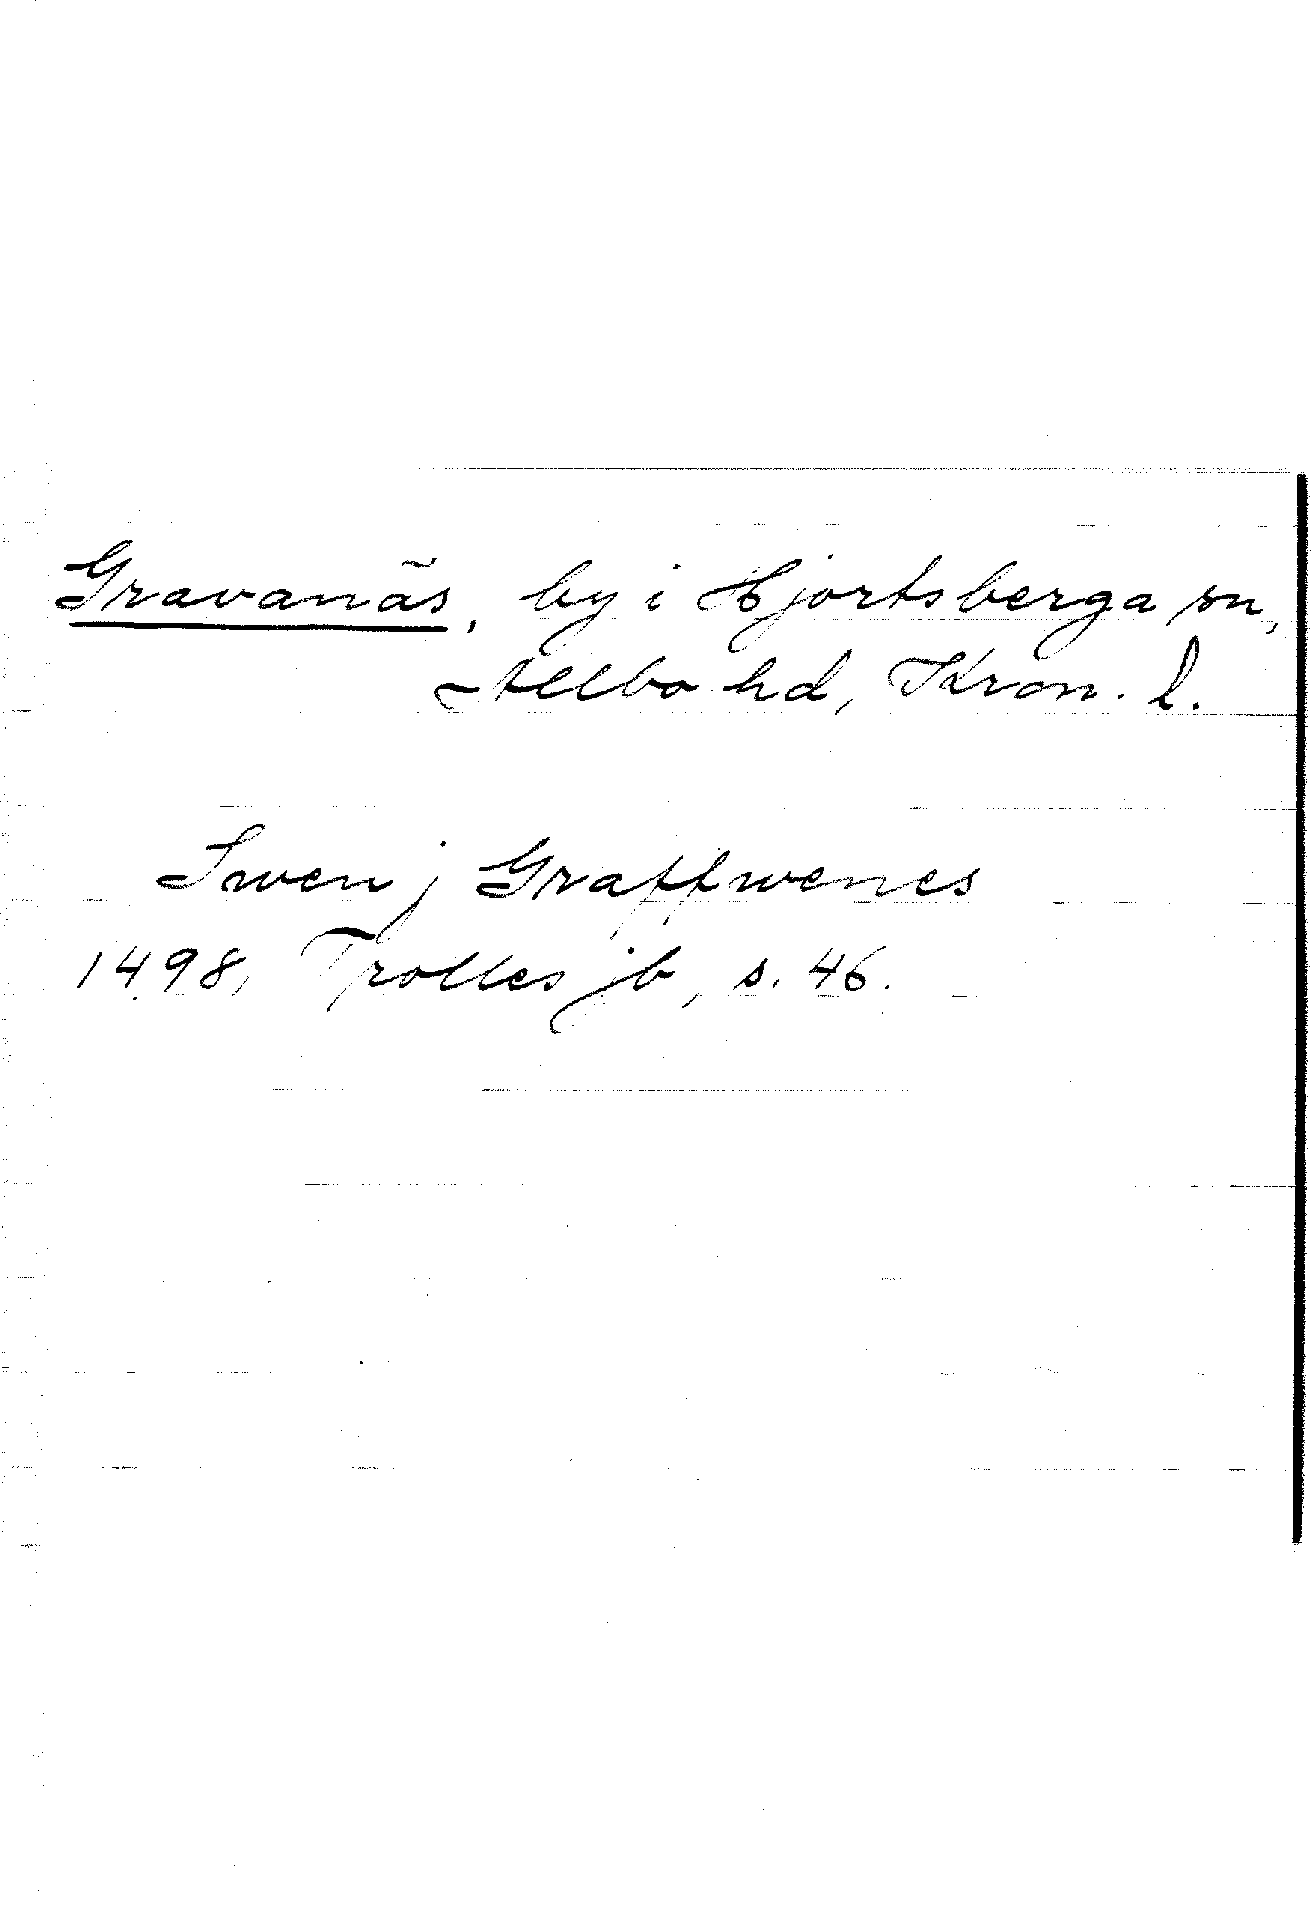 Gravanäs, by i Hjortsberga sn,
Allbo hd, Kron. l.
Swen j Graffwenes
1498, Trolles jb, s. 46.